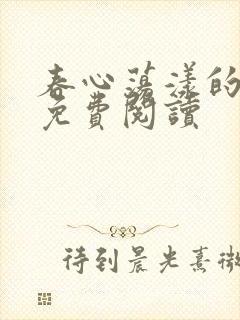 春心蕩漾的
免費閱讀
待到晨光熹微